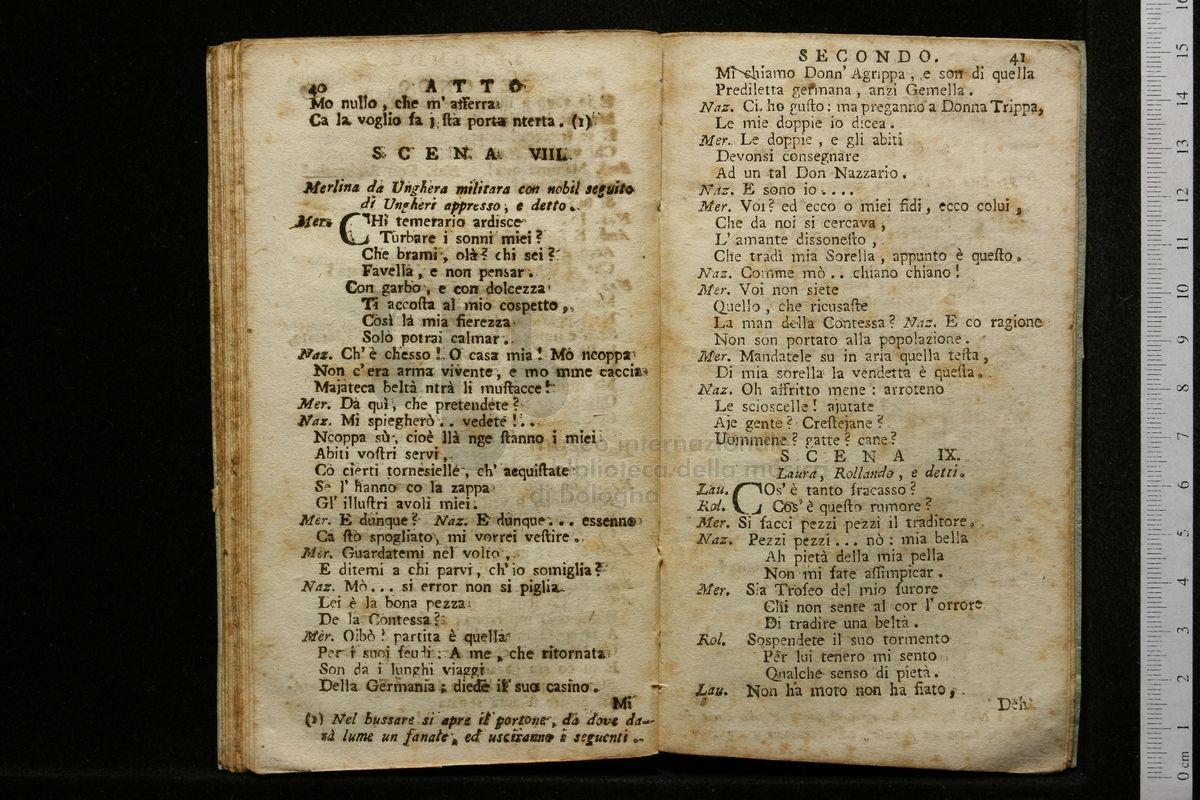 40 ATTO
Mo nullo, che m' afferra
Ca la voglio fa, sta porta nterta. (1)
SCENA VIII.
Merlina da Unghera militara con nobil seguito
di Ungheri appresso, e detto.
Mer. CHi temerario ardisce
Turbare i sonni miei?
Che brami, olà? chi sei?
Favella, e non pensar.
Con garbo, e con dolcezza
Ti accosta al mio cospetto,
Così la mia fierezza
Solo potrai calmar.
Naz. Ch' è chesso! O casa mia! Mò ncoppa
Non c' era arma vivente, e mo mme caccia
Majateca beltà ntrà li mustacce!
Mer. Dà quì, che pretendete?
Naz. Mi spiegherò.. vedete!..
Ncoppa sù, cioè llà nge stanno i miei
Abiti vostri servi,
Cò cierti tornesielle, ch' aequistate
Se l' hanno co la zappa
Gl' illustri avoli miei.
Mer. E dunque? Naz. E dunque... essenno
Ca stò spogliato, mi vorrei vestire.
Mer. Guardatemi nel volto,
E ditemi a chi parvi, ch' io somiglia?
Naz. Mò... si error non si piglia
Lei è la bona pezza
De la Contessa?
Mer. Oibò! partita è quella
Per i suoi feudi: A me, che ritornata
Son da i lunghi viaggi
Della Germania; diede il suo casino.
Mi
(1) Nel bussare si apre il portone, da dove da-
rà lume un fanale, ed usciranno i seguenti.
SECONDO. 41
Mi chiamo Donn' Agrippa, e son di quella
Prediletta germana, anzi Gemella.
Naz. Ci ho gusto: ma preganno a Donna Trippa,
Le mie doppie io dicea.
Mer. Le doppie, e gli abiti
Devonsi consegnare
Ad un tal Don Nazzario.
Naz. E sono io....
Mer. Voi? ed ecco o miei fidi, ecco colui,
Che da noi si cercava,
L' amante dissonesto,
Che tradì mia Sorella, appunto è questo.
Naz. Comme mò.. chiano chiano!
Mer. Voi non siete
Quello, che ricusaste
La man della Contessa? Naz. E co ragione
Non son portato alla popolazione.
Mer. Mandatele su in aria quella testa,
Di mia sorella la vendetta è questa.
Naz. Oh affritto mene: arroteno
Le scioscelle! ajutate
Aje gente? Crestejane?
Uommene? gatte? cane?
SCENA IX.
Laura, Rollando, e detti.
Lau. COs' è tanto fracasso?
Rol. Cos' è questo rumore?
Mer. Si facci pezzi pezzi il traditore.
Naz. Pezzi pezzi... nò: mia bella
Ah pietà della mia pella
Non mi fate assimpicar.
Mer. Sia Trofeo del mio furore
Chi non sente al cor l' orrore
Di tradire una beltà.
Rol. Sospendete il suo tormento
Per lui tenero mi sento
Qualche senso di pietà.
Lau. Non ha moto non ha fiato,
Deh
museo internazionale
e biblioteca della musica
di bologna